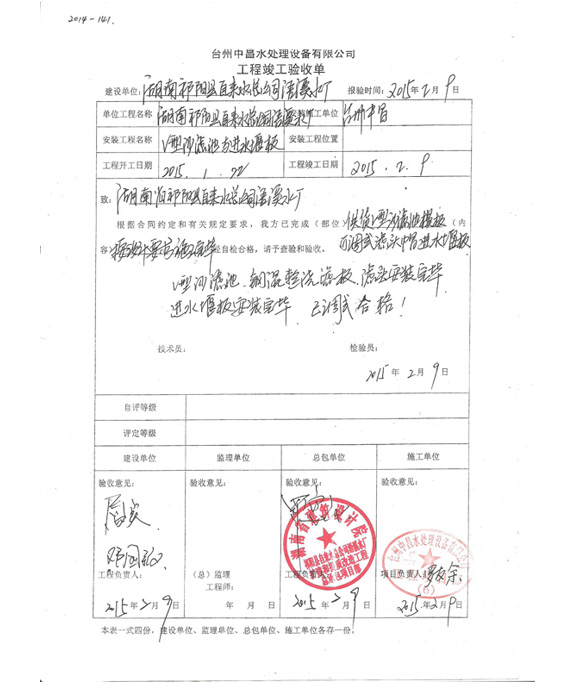 2014-141.
台州中昌水处理设备有限公司
工程竣工验收单
建设单位:湖南祁阳县自来水总公司浯溪水厂 报验时间:2015年2月9日
单位工程名称 湖南祁阳县自来水总公司浯溪水厂 安装施工单位 台州中昌
安装工程名称 V型沙滤池与进水堰板 安装工程位置
工程开工日期 2015.1.22 工程竣工日期 2015.2.9
致:湖南省祁阳县自来水总公司浯溪水厂
根据合同约定和有关规定要求,我方已完成(部位)供货V型沙滤池模板(内
容)按设计要求施工完毕 经自检合格,请予查验和验收。可调式滤头中昌进水堰板
V型沙滤池、钢混整浇滤板、滤头安装完毕
进水堰板安装完毕 已调试合格!
技术员: 检验员:
2015年2月9日
自评等级
评定等级
建设单位 监理单位 总包单位 施工单位
验收意见: 验收意见: 验收意见: 验收意见:
工程负责人: (总)监理 工程负责人: 项目负责人:
工程师:
2015年2月9日 年 月 日 2015年2月9日 2015年2月9日
本表一式四份,建设单位、监理单位、总包单位、施工单位各存一份。